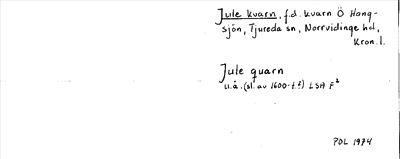 Jule kvarn, f.d. kvarn Ö Hang-
sjön, Tjureda sn, Norrvidinge hd,
Kron. l.
Jule quarn
u.å. (sl. av 1600-t.?) LSA F²
PDL 1974